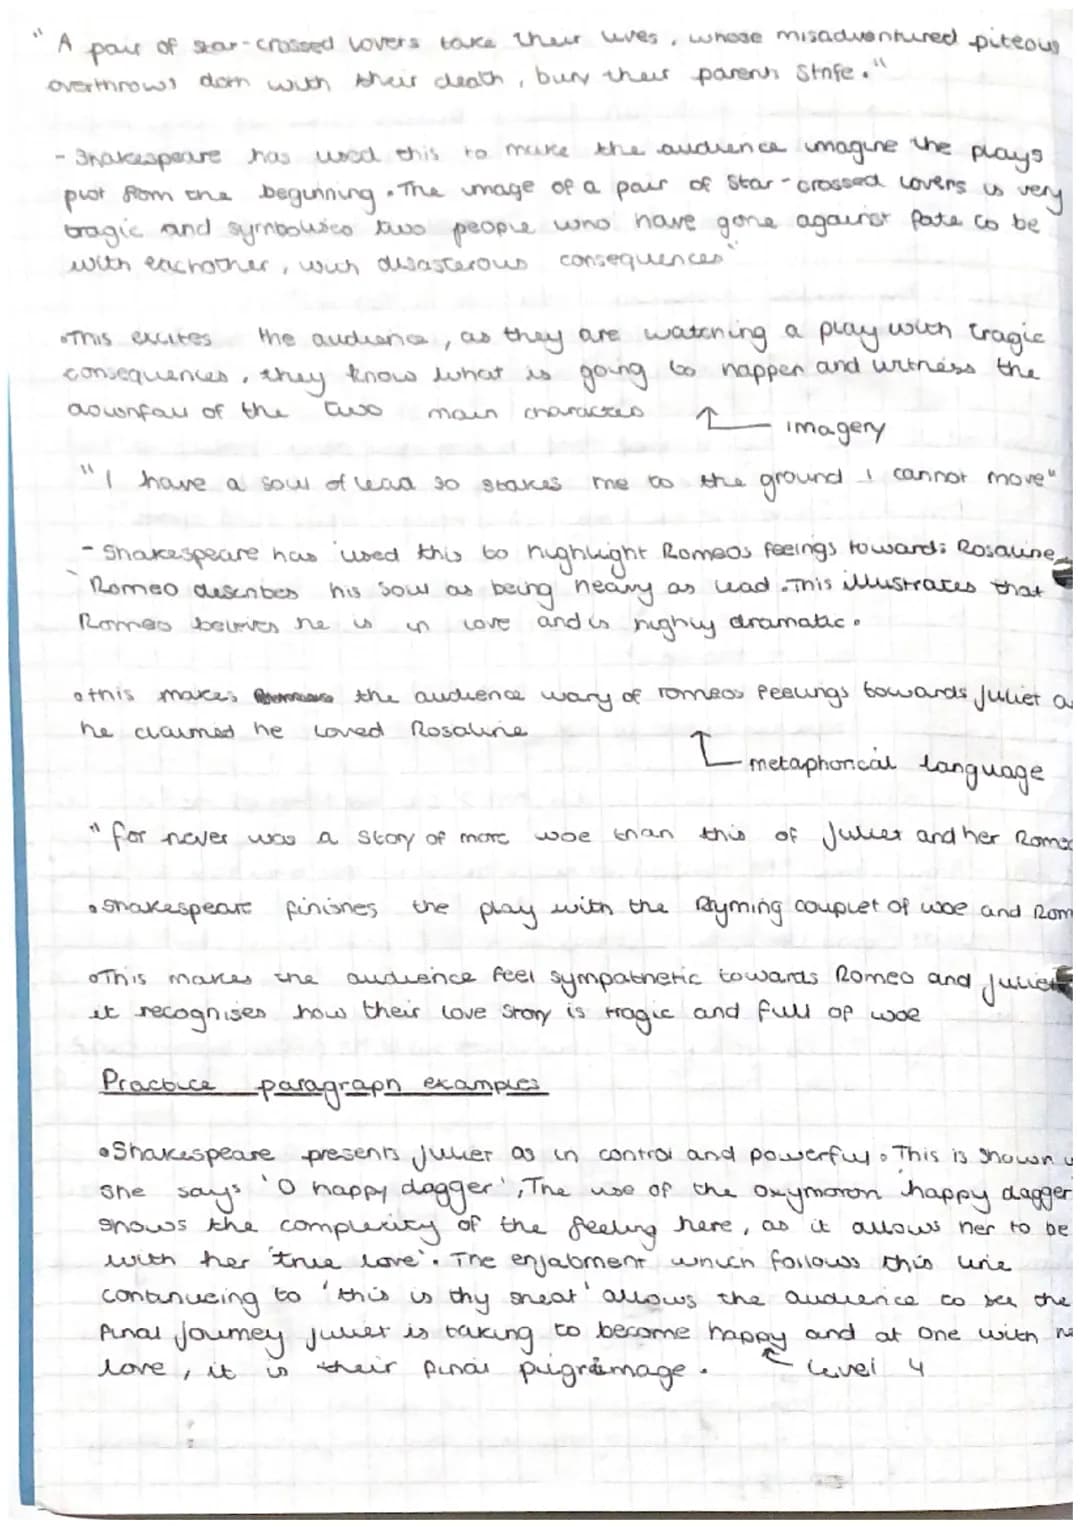 " A pair of star-crossed lovers take their lives, whose misadventured piteous
overthrows doth with their death, bury their parents strife."
- Shakespeare has used this to make the audience imagine the plays
plot from the beginning. The image of a pair of star-crossed lovers is very
tragic and symbolises two people who have gone against fate to be
with eachother, with disasterous consequences
•This excites the audience, as they are watching a play with tragic
consequences, they know what is going to happen and witness the
downfall of the two main characters
imagery
"I have a soul of lead so stakes me to the ground I cannot move"
- Shakespeare has used this to highlight Romeos feeings towards Rosaline
Romeo describes his soul as being heavy as lead. This illustrates that
Romeo believes he is in love and is highly dramatic.
•this makes the audience wary of romeos feelings towards Juliet as
he claimed he loved Rosaline
metaphorical language
"for never was a story of more woe than this of Juliet and her Romeo
•Shakespeare finishes the play with the Ryming couplet of woe and Rom
•This makes the audience feel sympathetic towards Romeo and Juliet
it recognises how their love story is tragic and full of woe
Practice paragraph examples
•Shakespeare presents Juliet as in control and powerful. This is shown
she says 'O happy dagger', The use of the oxymoron happy dagger
shows the complexity of the feeling here, as it allows her to be
with her 'true love'. The enjabment which follows this line
continueing to 'this is thy sheat' allows the audience to see the
final journey Juliet is taking to become happy and at one with
love, it is their final pilgrimage.
level 4